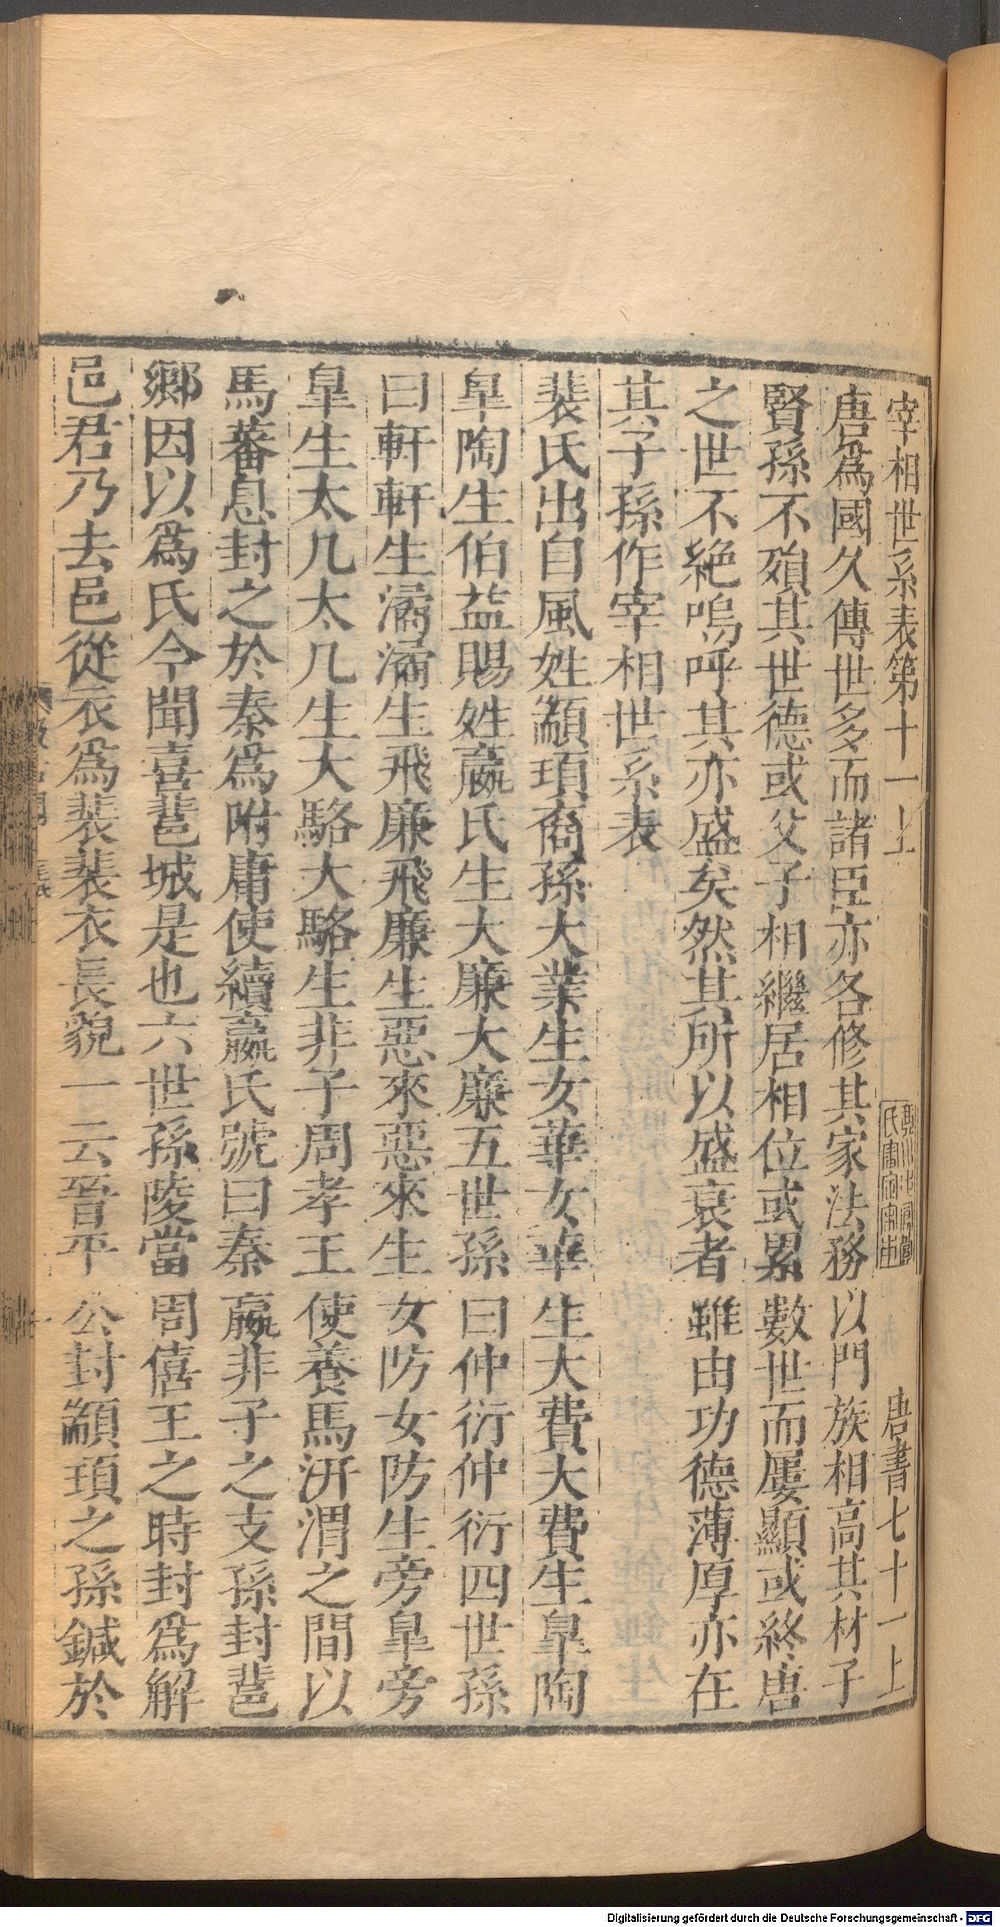 宰相世系表第十一上　唐書七十一上
唐爲國久傳世多而諸臣亦各修其家法務以門族相高其材子
賢孫不殞其世德或父子相繼居相位或累數世而屢顯或終唐
之世不絶嗚呼其亦盛矣然其所以盛衰者雖由功德薄厚亦在
其子孫作宰相世系表
裴氏出自風姓顓頊裔孫大業生女華女華生大費大費生臯陶
臯陶生伯益賜姓嬴氏生大廉大廉五世孫曰仲衍仲衍四世孫
曰軒軒生潏潏生飛廉飛廉生惡來惡來生女防女防生旁臯旁
臯生太几太几生大駱大駱生非子周孝王使養馬汧渭之間以
馬蕃息封之於秦爲附庸使續嬴氏號曰秦嬴非子之支孫封䣙
鄉因以爲氏今聞喜䣙城是也六世孫陵當周僖王之時封爲解
邑君乃去邑從衣爲裴裴衣長貌一云晉平公封顓頊之孫鍼於
Digitalisierung gefördert durch die Deutsche Forschungsgemeinschaft - DFG